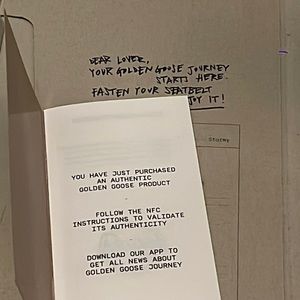 DEAR LOVER,
YOUR GOLDEN GOOSE JOURNEY
STARTS HERE.
FASTEN YOUR SEATBELT
JOY IT!
Story
YOU HAVE JUST PURCHASED
AN AUTHENTIC
GOLDEN GOOSE PRODUCT
FOLLOW THE NFC
INSTRUCTIONS TO VALIDATE
ITS AUTHENTICITY
DOWNLOAD OUR APP TO
GET ALL NEWS ABOUT
GOLDEN GOOSE JOURNEY